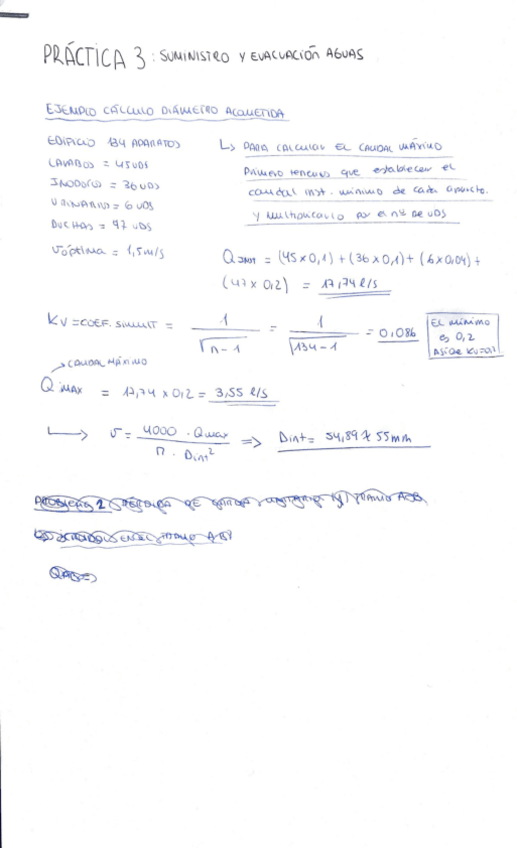 PRÁCTICA 3: SUMINISTRO Y EVACUACIÓN AGUAS
EJEMPLO CÁLCULO DIÁMETRO ACOMETIDA
EDIFICIO 134 APARATOS
LAVABOS = 45 UDS
INODOROS = 36 UDS
URINARIOS = 6 UDS
DUCHAS = 47 UDS
Vóptima = 1,5 m/s
↳ PARA CALCULAR EL CAUDAL MÁXIMO
Primero tenemos que establecer el
caudal inst. mínimo de cada aparato.
y multiplicarlo por el nº de UDS
Q INST = (45 x 0,1) + (36 x 0,1) + (6 x 0,04) +
(47 x 0,2) = 17,74 l/s
Kv = COEF. SIMULT = 1/√n-1 = 1/√134-1 = 0,086
El mínimo
es 0,2
Así de Kv=0,2
→ CAUDAL MÁXIMO
Q MAX = 17,74 x 0,2 = 3,55 l/s
↳ v = 4000 · Qmax / π · Dint² => Dint = 54,89 ≈ 55mm
PROBLEMA 2